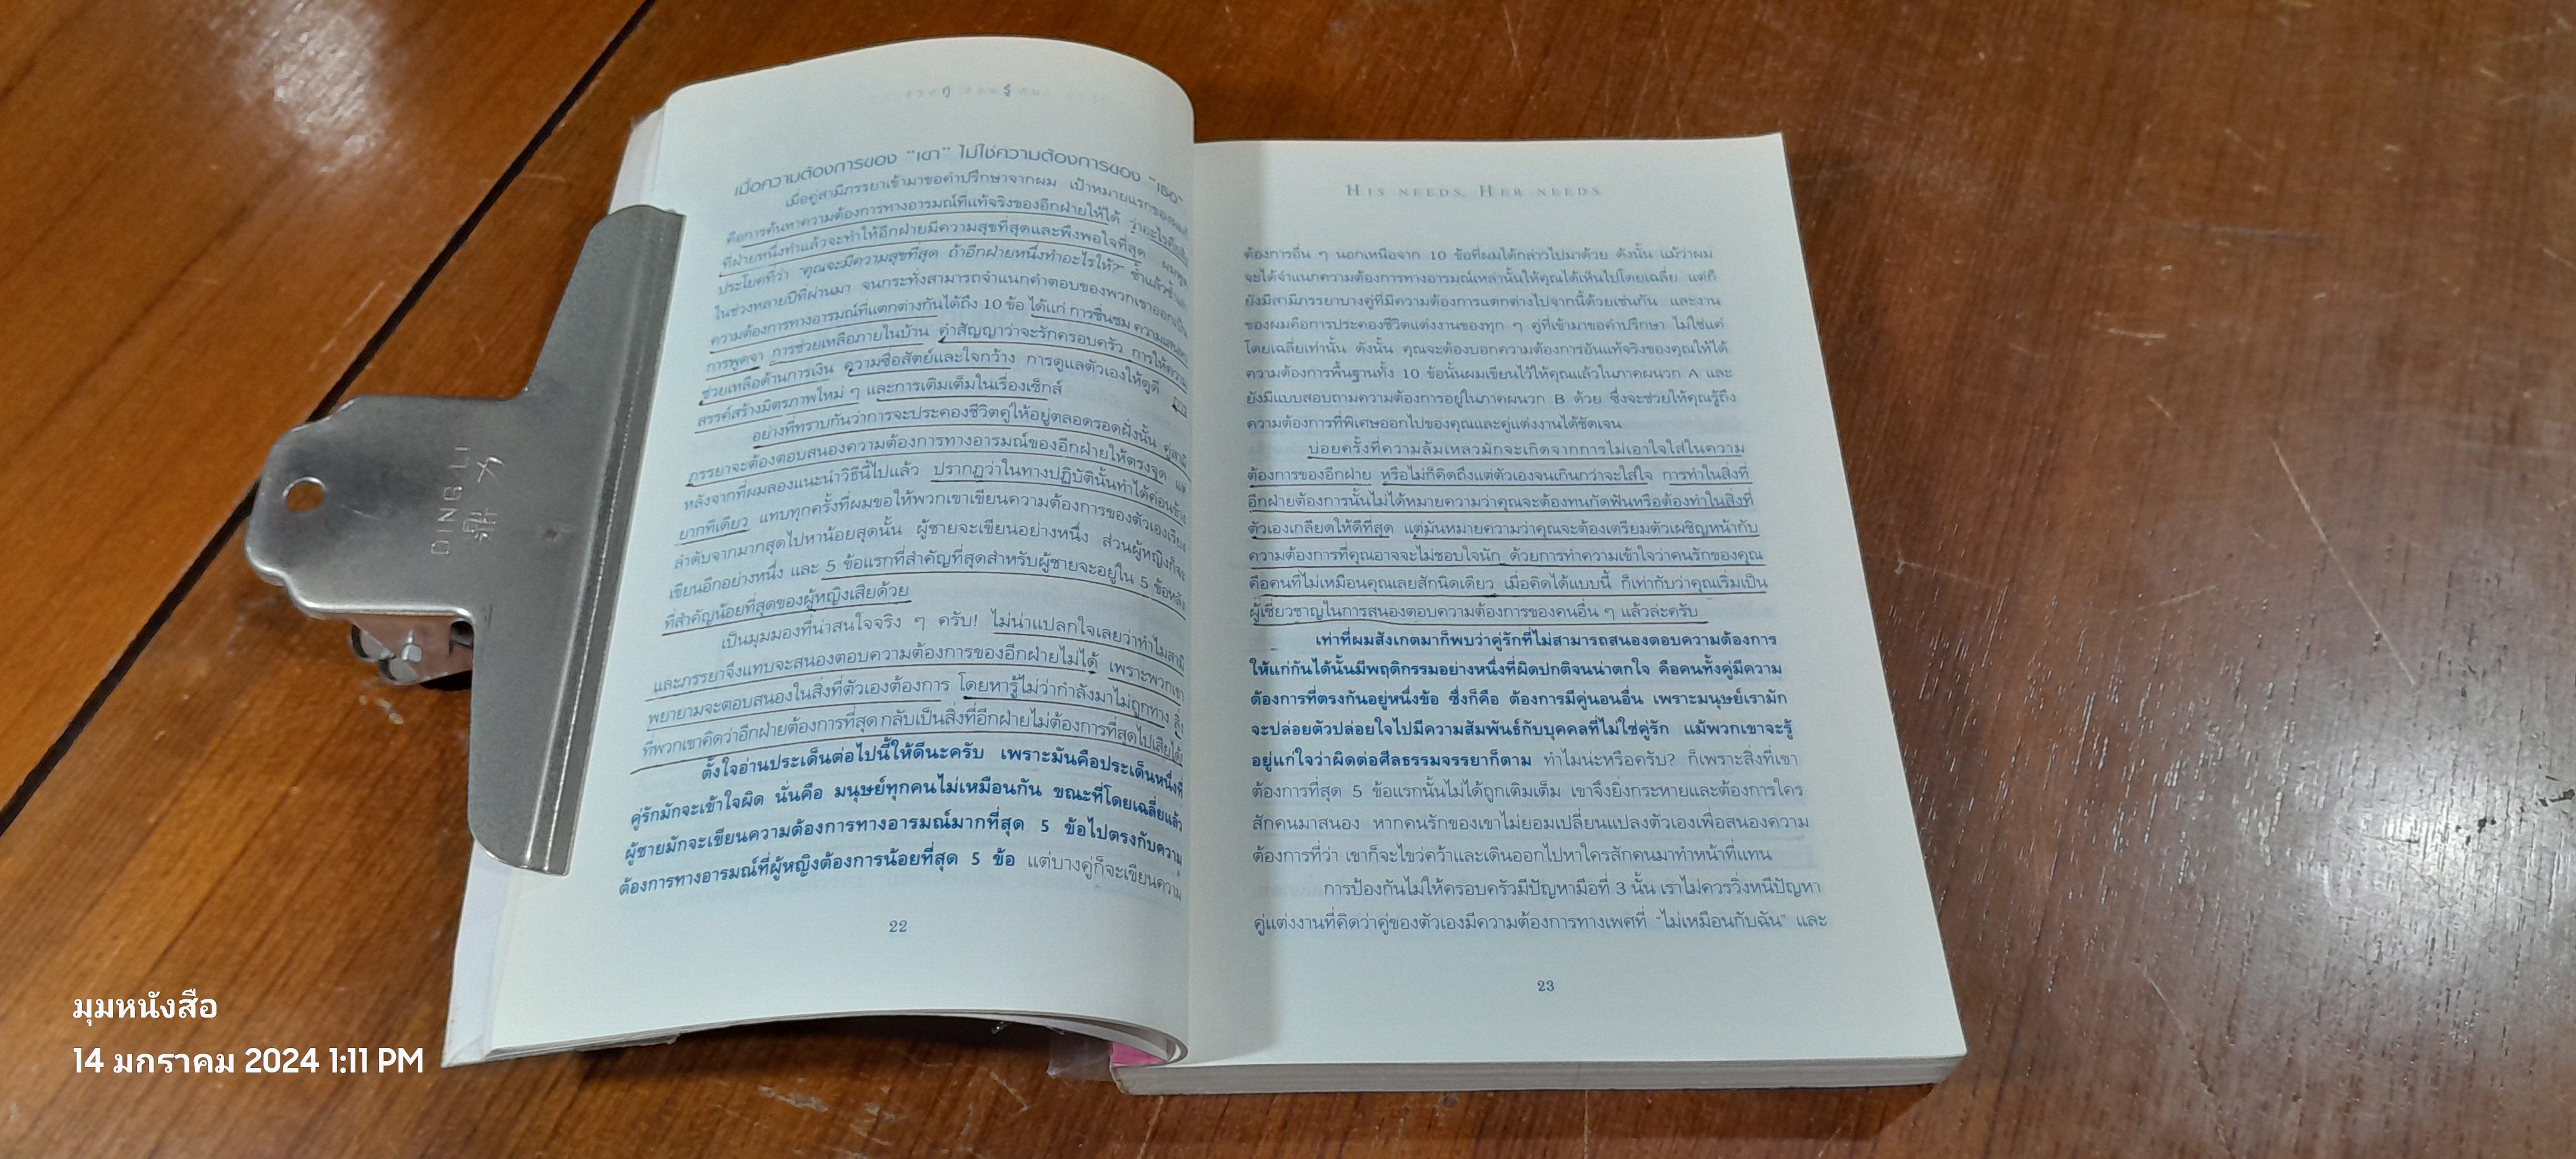 เมื่อความต้องการของ "เขา" ไม่ใช่ความต้องการของ "เธอ"
เมื่อคู่สามีภรรยาเข้ามาขอคำปรึกษาจากผม เป้าหมายแรกของผมก็
คือการค้นหาความต้องการทางอารมณ์ที่แท้จริงของอีกฝ่ายให้ได้ ว่าอะไรคือสิ่ง
ที่ฝ่ายหนึ่งทำแล้วจะทำให้อีกฝ่ายมีความสุขที่สุดและพึงพอใจที่สุด
ประโยคที่ว่า "คุณจะมีความสุขที่สุด ถ้าอีกฝ่ายหนึ่งทำอะไรให้?" ซ้ำแล้วซ้ำเล่า
ในช่วงหลายปีที่ผ่านมา จนกระทั่งสามารถจำแนกคำตอบของพวกเขาออกเป็น
ความต้องการทางอารมณ์ที่แตกต่างกันได้ถึง 10 ข้อ ได้แก่ การชื่นชม ความเสน่หา
การพูดจา การช่วยเหลือภายในบ้าน คำสัญญาว่าจะรักครอบครัว การให้ความ
ช่วยเหลือด้านการเงิน ความซื่อสัตย์และใจกว้าง การดูแลตัวเองให้ดูดี
สรรค์สร้างมิตรภาพใหม่ ๆ และการเติมเต็มในเรื่องเซ็กส์
อย่างที่ทราบกันว่าการจะประคองชีวิตคู่ให้อยู่ตลอดรอดฝั่งนั้น คู่สามี
ภรรยาจะต้องตอบสนองความต้องการทางอารมณ์ของอีกฝ่ายให้ตรงจุด แต่
หลังจากที่ผมลองแนะนำวิธีนี้ไปแล้ว ปรากฏว่าในทางปฏิบัตินั้นทำได้ค่อนข้าง
ยากทีเดียว แทบทุกครั้งที่ผมขอให้พวกเขาเขียนความต้องการของตัวเองเรียง
ลำดับจากมากสุดไปหาน้อยสุดนั้น ผู้ชายจะเขียนอย่างหนึ่ง ส่วนผู้หญิงก็จะ
เขียนอีกอย่างหนึ่ง และ 5 ข้อแรกที่สำคัญที่สุดสำหรับผู้ชายจะอยู่ใน 5 ข้อหลัง
ที่สำคัญน้อยที่สุดของผู้หญิงเสียด้วย
เป็นมุมมองที่น่าสนใจจริง ๆ ครับ! ไม่น่าแปลกใจเลยว่าทำไมสามี
และภรรยาจึงแทบจะสนองตอบความต้องการของอีกฝ่ายไม่ได้ เพราะพวกเขา
พยายามจะตอบสนองในสิ่งที่ตัวเองต้องการ โดยหารู้ไม่ว่ากำลังมาไม่ถูกทาง สิ่ง
ที่พวกเขาคิดว่าอีกฝ่ายต้องการที่สุด กลับเป็นสิ่งที่อีกฝ่ายไม่ต้องการที่สุดไปเสียได้
ตั้งใจอ่านประเด็นต่อไปนี้ให้ดีนะครับ เพราะมันคือประเด็นหนึ่งที่
คู่รักมักจะเข้าใจผิด นั่นคือ มนุษย์ทุกคนไม่เหมือนกัน ขณะที่โดยเฉลี่ยแล้ว
ผู้ชายมักจะเขียนความต้องการทางอารมณ์มากที่สุด 5 ข้อไปตรงกับความ
ต้องการทางอารมณ์ที่ผู้หญิงต้องการน้อยที่สุด 5 ข้อ แต่บางคู่ก็จะเขียนความ
22
HIS NEEDS, HER NEEDS
ต้องการอื่น ๆ นอกเหนือจาก 10 ข้อที่ผมได้กล่าวไปมาด้วย ดังนั้น แม้ว่าผม
จะได้จำแนกความต้องการทางอารมณ์เหล่านั้นให้คุณได้เห็นไปโดยเฉลี่ย แต่ก็
ยังมีสามีภรรยาบางคู่ที่มีความต้องการแตกต่างไปจากนี้ด้วยเช่นกัน และงาน
ของผมคือการประคองชีวิตแต่งงานของทุก ๆ คู่ที่เข้ามาขอคำปรึกษา ไม่ใช่แค่
โดยเฉลี่ยเท่านั้น ดังนั้น คุณจะต้องบอกความต้องการอันแท้จริงของคุณให้ได้
ความต้องการพื้นฐานทั้ง 10 ข้อนั้นผมเขียนไว้ให้คุณแล้วในภาคผนวก A และ
ยังมีแบบสอบถามความต้องการอยู่ในภาคผนวก B ด้วย ซึ่งจะช่วยให้คุณรู้ถึง
ความต้องการที่พิเศษออกไปของคุณและคู่แต่งงานได้ชัดเจน
บ่อยครั้งที่ความล้มเหลวมักจะเกิดจากการไม่เอาใจใส่ในความ
ต้องการของอีกฝ่าย หรือไม่ก็คิดถึงแต่ตัวเองจนเกินกว่าจะใส่ใจ การทำในสิ่งที่
อีกฝ่ายต้องการนั้นไม่ได้หมายความว่าคุณจะต้องทนกัดฟันหรือต้องทำในสิ่งที่
ตัวเองเกลียดให้ดีที่สุด แต่มันหมายความว่าคุณจะต้องเตรียมตัวเผชิญหน้ากับ
ความต้องการที่คุณอาจจะไม่ชอบใจนัก ด้วยการทำความเข้าใจว่าคนรักของคุณ
คือคนที่ไม่เหมือนคุณเลยสักนิดเดียว เมื่อคิดได้แบบนี้ ก็เท่ากับว่าคุณเริ่มเป็น
ผู้เชี่ยวชาญในการสนองตอบความต้องการของคนอื่น ๆ แล้วล่ะครับ
เท่าที่ผมสังเกตมาก็พบว่าคู่รักที่ไม่สามารถสนองตอบความต้องการ
ให้แก่กันได้นั้นมีพฤติกรรมอย่างหนึ่งที่ผิดปกติจนน่าตกใจ คือคนทั้งคู่มีความ
ต้องการที่ตรงกันอยู่หนึ่งข้อ ซึ่งก็คือ ต้องการมีคู่นอนอื่น เพราะมนุษย์เรามัก
จะปล่อยตัวปล่อยใจไปมีความสัมพันธ์กับบุคคลที่ไม่ใช่คู่รัก แม้พวกเขาจะรู้
อยู่แก่ใจว่าผิดต่อศีลธรรมจรรยาก็ตาม ทำไมนะหรือครับ? ก็เพราะสิ่งที่เขา
ต้องการที่สุด 5 ข้อแรกนั้นไม่ได้ถูกเติมเต็ม เขาจึงยิ่งกระหายและต้องการใคร
สักคนมาสนอง หากคนรักของเขาไม่ยอมเปลี่ยนแปลงตัวเองเพื่อสนองความ
ต้องการที่ว่า เขาก็จะไขว่คว้าและเดินออกไปหาใครสักคนมาทำหน้าที่แทน
การป้องกันไม่ให้ครอบครัวมีปัญหามือที่ 3 นั้น เราไม่ควรวิ่งหนีปัญหา
คู่แต่งงานที่คิดว่าคู่ของตัวเองมีความต้องการทางเพศที่ "ไม่เหมือนกับฉัน" และ
23
DING LI
鼎力
มุมหนังสือ
14 มกราคม 2024 1:11 PM